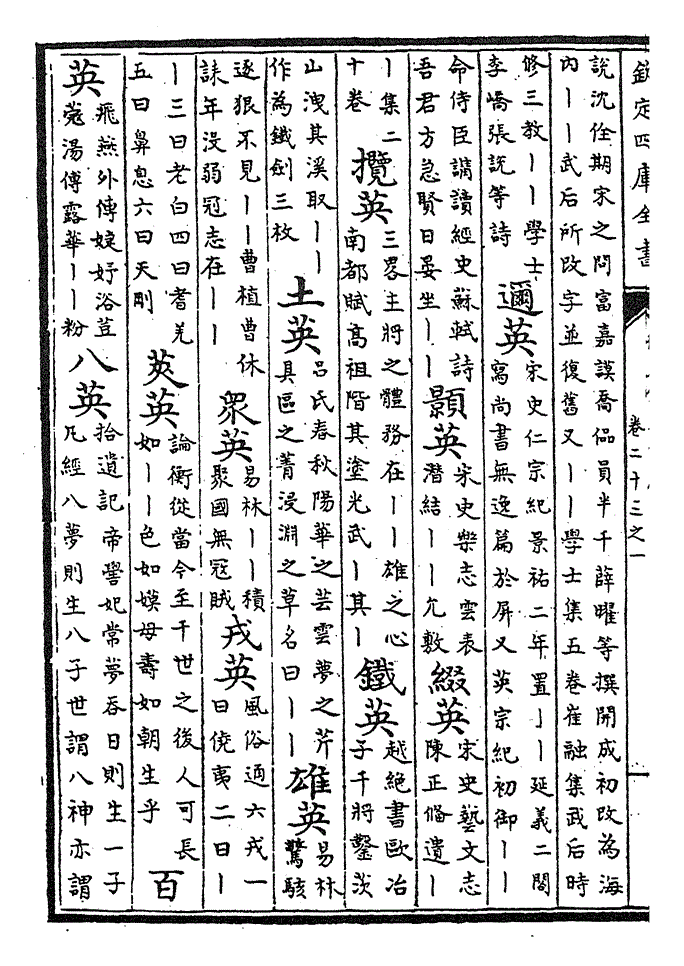 欽定四庫全書
卷二十三之一
說沈佺期宋之問富嘉謨喬侃員半千薛曜等撰開成初改為海
內丨丨武后所改字並復舊又丨丨學士集五卷崔融集武后時
修三教丨丨學士
李嶠張說等詩
邇英
宋史仁宗紀景祐二年置丨丨延義二閣
寫尚書無逸篇於屏又英宗紀初御丨丨
命侍臣講讀經史蘇軾詩
吾君方急賢日晏坐丨丨
顥英
宋史樂志雲表
潛結丨丨允敷
綴英
宋史藝文志
陳正脩遺丨
丨集二
十卷
攬英
三畧主將之體務在丨丨雄之心
南都賦高祖階其塗光武丨其丨
鐵英
越絕書歐冶
子干將鑿茨
山洩其溪取丨丨
作為鐵劍三枚
土英
呂氏春秋陽華之芸雲夢之芹
具區之菁浸淵之草名曰丨丨
雄英
易林
驚駭
逐狠不見丨丨曹植曹休
誄年没弱冠志在丨丨
衆英
易林丨丨積
聚國無冦賊
戎英
風俗通六戎一
曰僥夷二曰丨
丨三曰老白四曰耆羌
五曰鼻息六曰天剛
莢英
論衡從當今至千世之後人可長
如丨丨色如嫫母壽如朝生乎
百
英
飛燕外傳婕妤浴荳
蔲湯傅露華丨丨粉
八英
拾遺記帝嚳妃常夢吞日則生一子
凡經八夢則生八子世謂八神亦謂